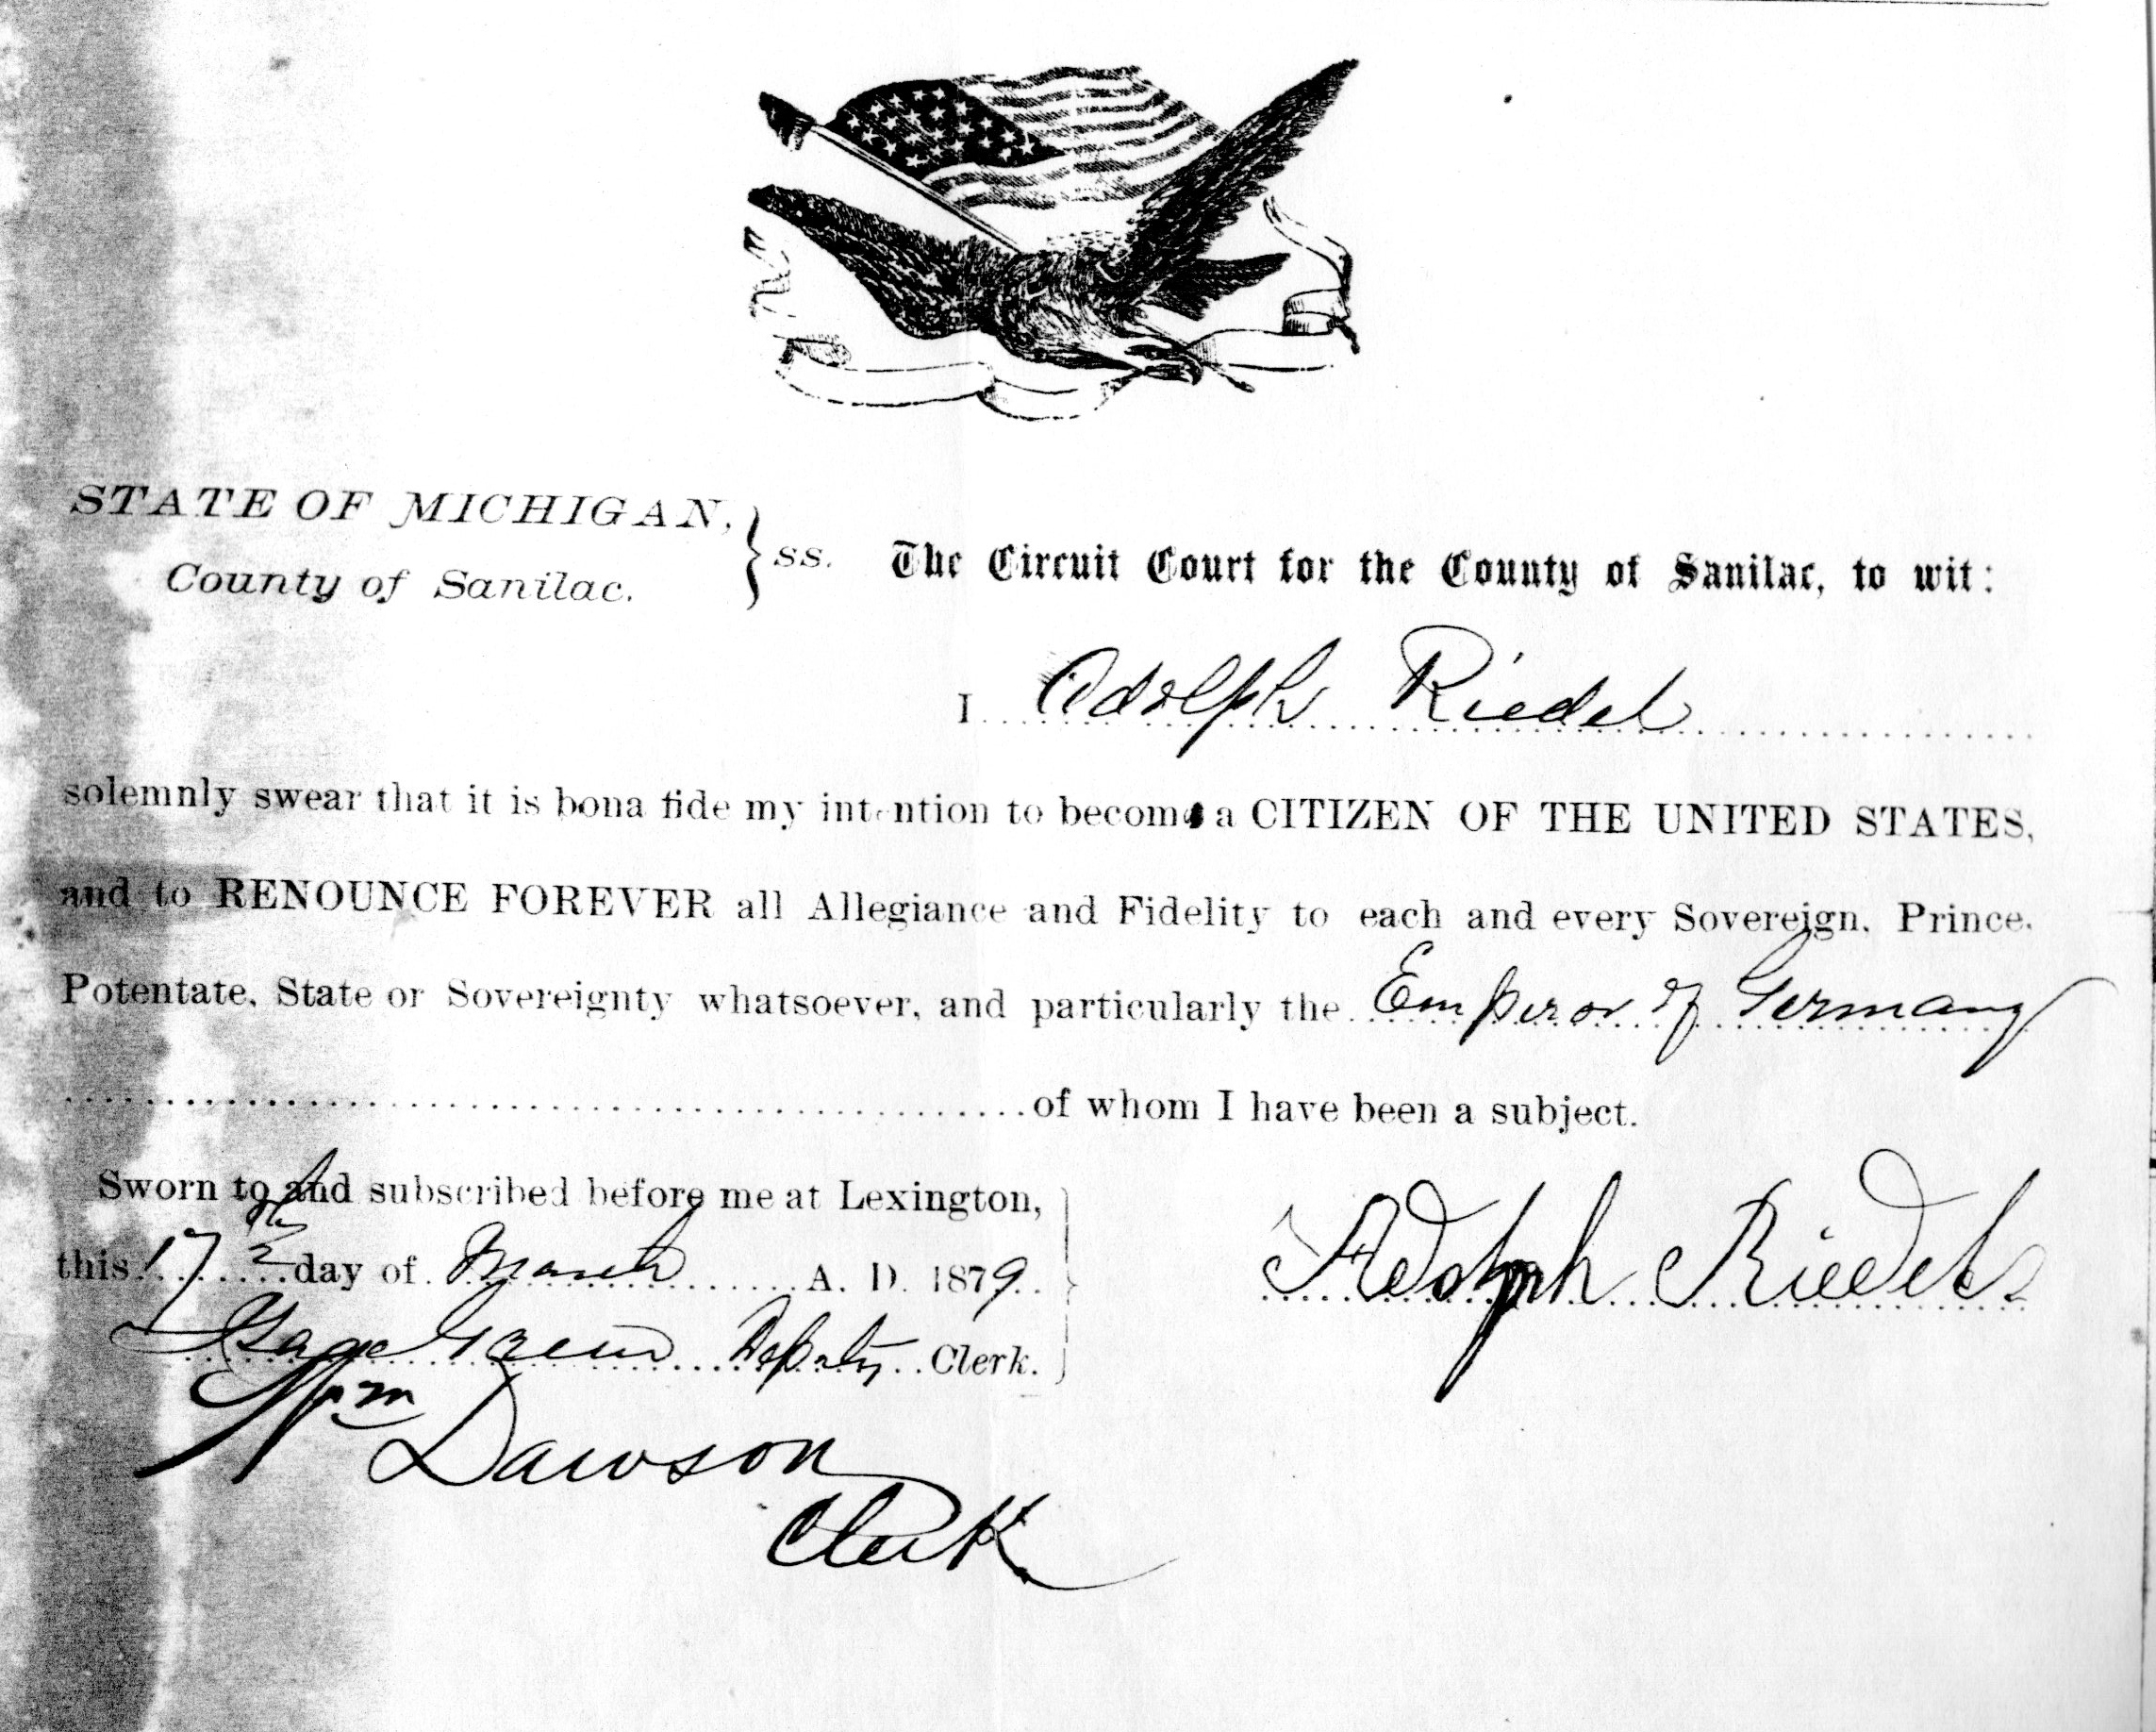 STATE OF MICHIGAN,
County of Sanilac. } ss. The Circuit Court for the County of Sanilac, to wit:
I Adolph Riedel
solemnly swear that it is bona fide my intention to become a CITIZEN OF THE UNITED STATES,
and to RENOUNCE FOREVER all Allegiance and Fidelity to each and every Sovereign, Prince,
Potentate, State or Sovereignty whatsoever, and particularly the Emperor of Germany
of whom I have been a subject.
Sworn to and subscribed before me at Lexington,
this 17th day of March A. D. 1879.
Adolph Riedel
Deputy Clerk.
Wm Dawson
Clerk